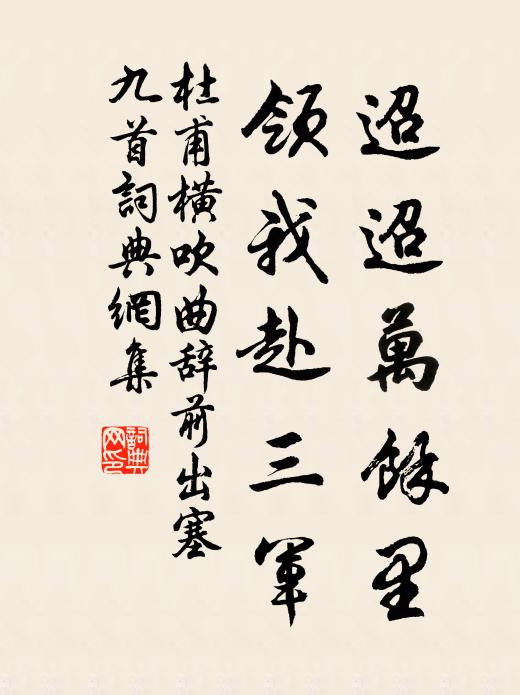 迢迢萬餘里
領我赴三軍
杜甫橫吹曲辞前出塞
九首詞典網集
詞典网印